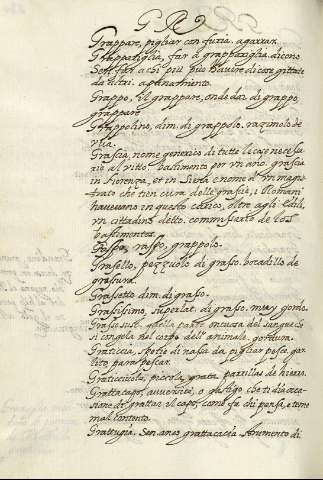 G R
Grappare, pigliar con furia. agarrar.
Grappariglia, far a grappariglia. dicono
far a chi più può havere di cosa gittate
da altri.
Grappo, il grappare, onde dar di grappo,
grappare
Grappolino, dim. di grappolo. razimolo de
vua.
Grascia, nome generico di tutte le cose necessa
rio al vitto. bastimento per vn año. grascia
in Fiorenza, et in Siena è nome d'vn magis
trato che tien cura delle grascie, i Romani
haueuano in questo carico, oltre agli Edili,
vn cittadino detto. commissario de los
bastimentos.
raspo, grappolo.
Grasello, pezzuolo di grasso. bocadillo de
grassura.
Grassetto dim. di grasso.
Grassissimo, superlat. di grasso. muy gordo.
Grasso sust. quella parte untuosa del sangue che
si congela nel corpo dell'animale. gordura.
Graticcia, spetie di nassa da pigliar pesce. gar
lito para pescar.
Graticciuola, piccola, grata. parrillas de hierro.
Grattacapo, o gastigo che ti dia oca
sione di grattar il capo, come fa chi pensa, e teme
mal contento.
Grattugia. San. anco grattacacia. strumento di